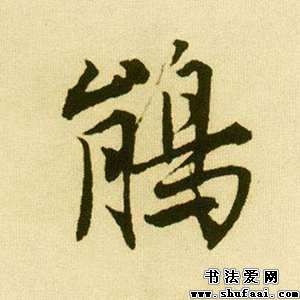 鵑
书法爱网
www.shufaai.com